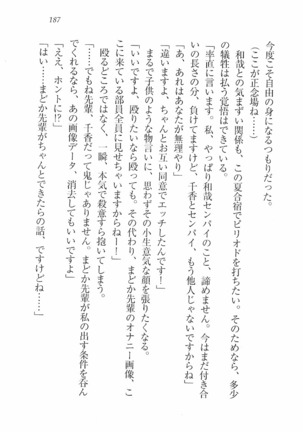 187
今度こそ自由の身になるつもりだった。
（ここが正念場ね……）
和哉との気まずい関係も、この夏合宿でピリオドを打ちたい。そのためなら、多少
の犠牲は払う覚悟はできている。
「率直に言います。私、やっぱり和哉センパイのこと、諦めません。今はまだ付き合
いの長さの分、負けてますけど、千香とセンパイ、もう他人じゃないですからね」
「あ、あれはあなたが無理やり」
「違いますよ、ちゃんとお互い同意でエッチしたんです！」
まるで子供のような物言いに、思わずその小生意気な顔を張りたくなる。
「いいですよ、殴りたいなら殴っても。その代わり、まどか先輩のオナニー画像、こ
こに来ている部員全員に見せちゃいますからねー！」
殴るどころではなく、一瞬、本気で殺意すら抱いてしまう。
「……でもね先輩、千香だって鬼じゃありません。まどか先輩が私の出す条件を呑ん
でくれるなら、あの画像データ、消去してもいいですよ」
「ええ、ホントに!?」
「はい……まどか先輩がちゃんとできたらの話、ですけどねー」